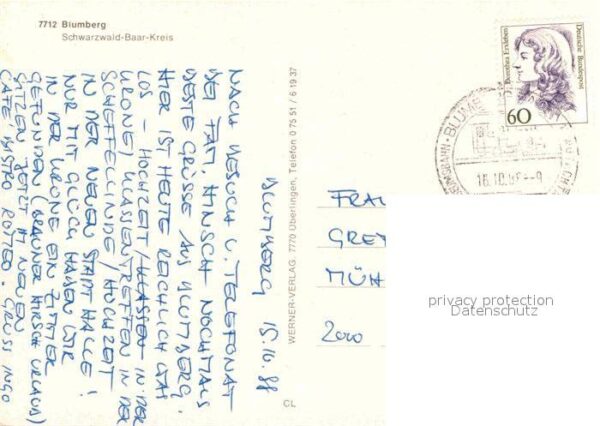 7712 Blumberg
Schwarzwald-Baar-Kreis
BLUMBERG, 15.10.88
NACH BESUCH U. TELEFONAT
BEI FAM. HINSCH NOCHMALS
BESTE GRÜSSE AUS BLUMBERG.
HIER IST HEUTE REICHLICH WAS
LOS - HOCHZEIT / KLASSEN IN DER
KRONE / KLASSENTREFFEN IN DER
SCHEFFELLINDE / HOCHZEIT
IN DER NEUEN STADTHALLE!
NUR MIT GLÜCK HABEN WIR
IN DER KRONE EIN ZIMMER
GEFUNDEN (BRAUNER HIRSCH URLAUB)
SITZEN JETZT IM NEUEN
CAFE/BISTRO. GRUSS INGO
WERNER-VERLAG 7770 Überlingen, Telefon 0 75 51 / 6 19 37
CL
Dorothea Erxleben
Deutsche Bundespost
60
BLUMB
16.10.88-9
FRAU
GRET
MÜH
2000
privacy protection
Datenschutz